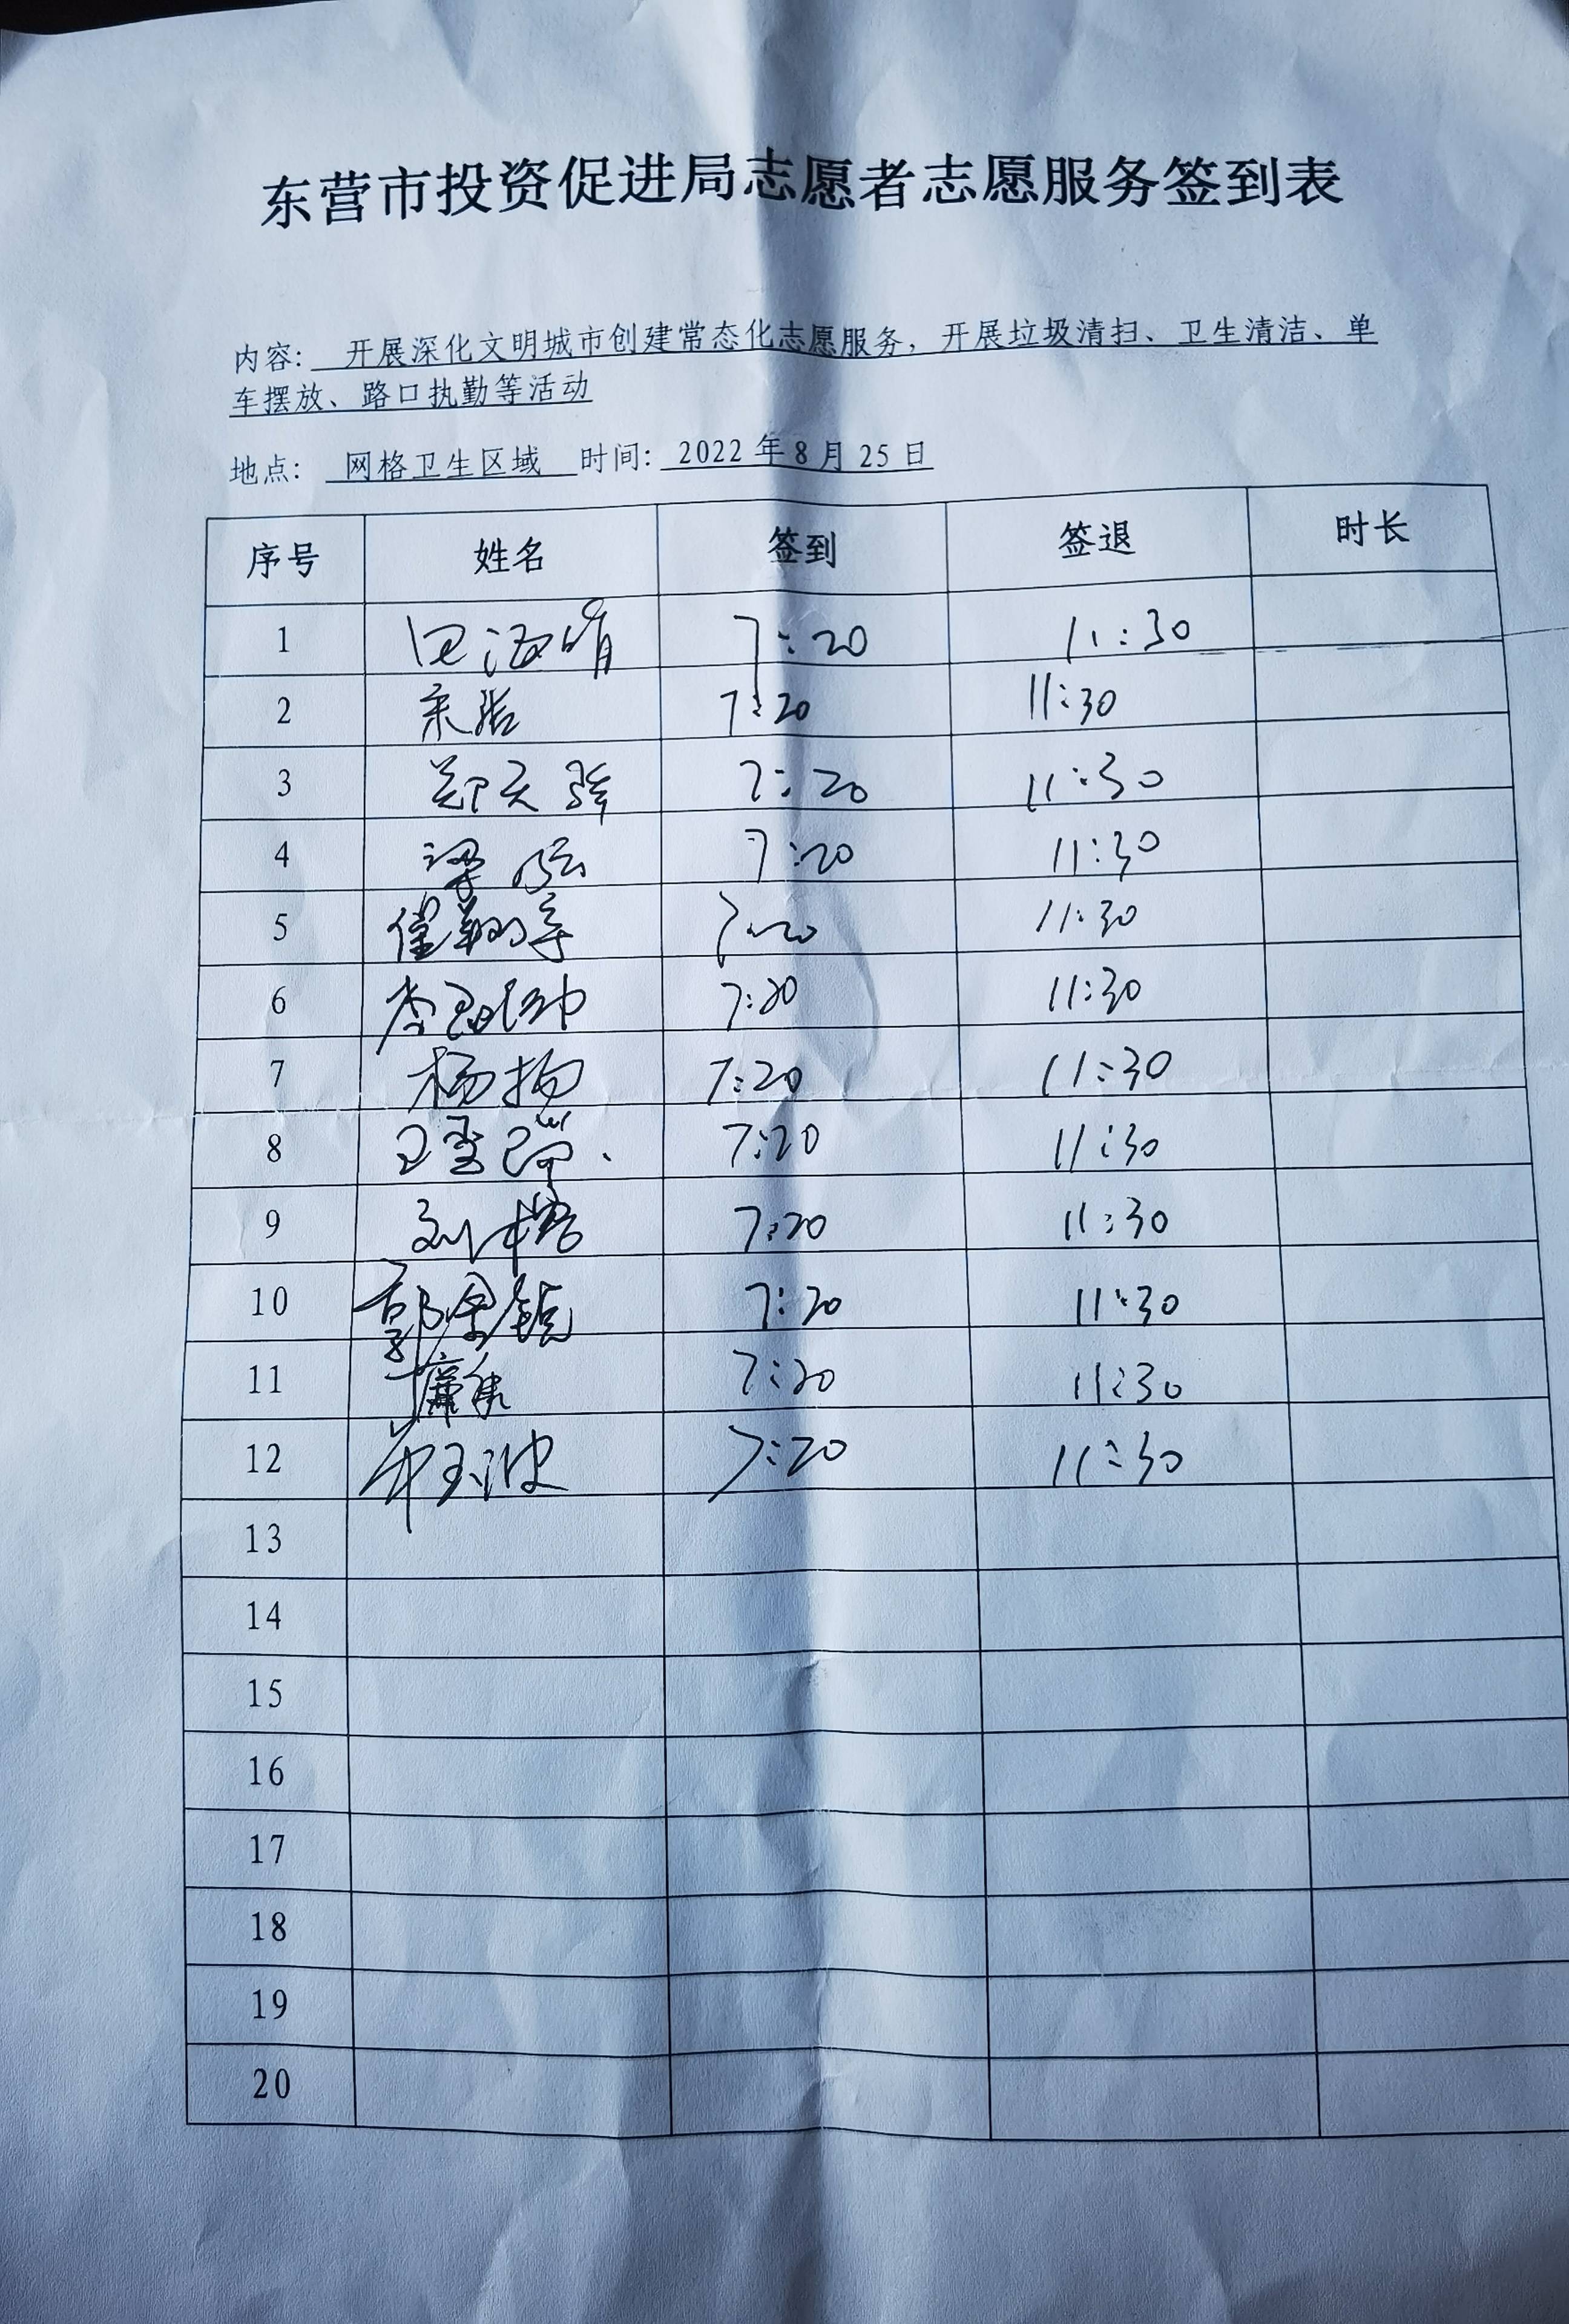 东营市投资促进局志愿者志愿服务签到表
内容: 开展深化文明城市创建常态化志愿服务，开展垃圾清扫、卫生清洁、单
车摆放、路口执勤等活动
地点: 网格卫生区域 时间: 2022年8月25日
序号 姓名 签到 签退 时长
1 田海晴 7:20 11:30
2 7:20 11:30
3 郑天骄 7:20 11:30
4 梁 7:20 11:30
5 崔翔宇 7:20 11:30
6 李 7:20 11:30
7 杨扬 7:20 11:30
8 7:20 11:30
9 刘 7:20 11:30
10 郭金镜 7:20 11:30
11 7:20 11:30
12 7:20 11:30
13
14
15
16
17
18
19
20